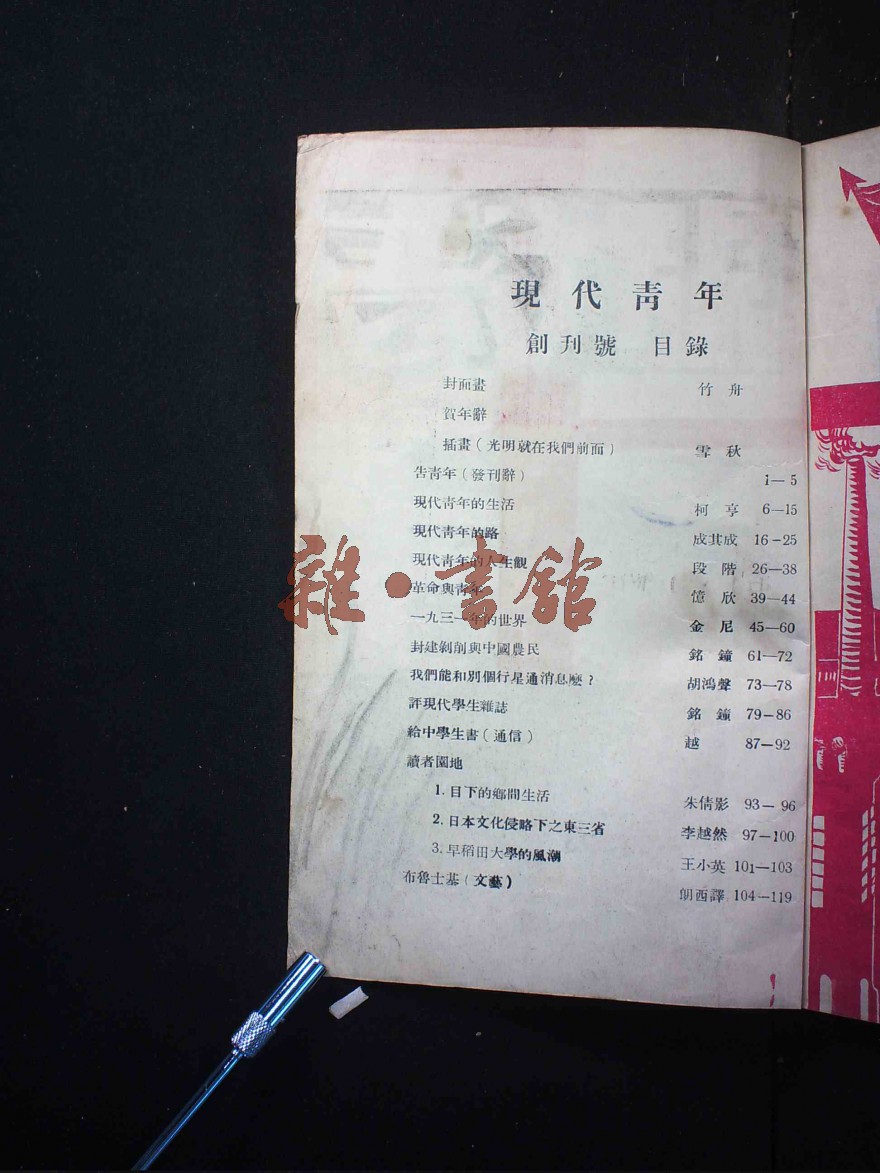 現代青年
創刊號 目錄
封面畫 竹舟
賀年辭
插畫(光明就在我們前面) 雪秋
告青年(發刊辭) 1—5
現代青年的生活 柯亨 6—15
現代青年的路 成其成 16-25
現代青年的人生觀 段階 26—38
革命與青年 憶欣 39—44
一九三一年的世界 金尼 45—60
封建剝削與中國農民 銘鐘 61—72
我們能和別個行星通消息麼? 胡鴻聲 73—78
評現代學生雜誌 銘鐘 79-86
給中學生書(通信) 越 87—92
讀者園地
1. 目下的鄉間生活 朱倩影 93—96
2. 日本文化侵略下之東三省 李越然 97—100
3. 早稻田大學的風潮 王小英 101—103
布魯士基(文藝) 朗西譯 104—119
雜·書館